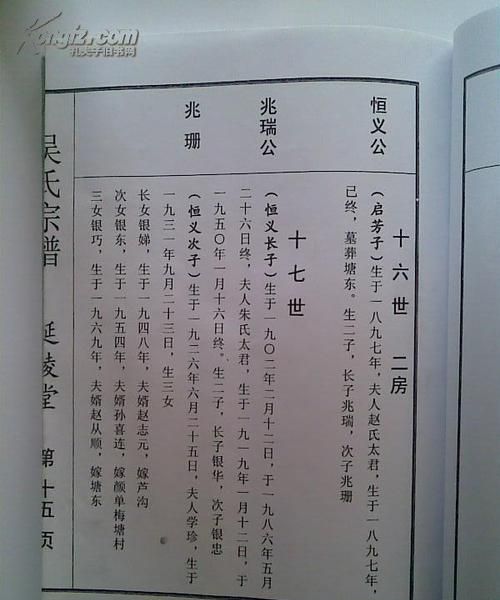 Kongfz.com
孔夫子旧书网
十六世 二房
恒义公
(启芳子)生于一八九七年,夫人赵氏太君,生于一八九七年,
已终,墓葬塘东。生二子,长子兆瑞,次子兆珊
十七世
兆瑞公
(恒义长子)生于一九〇二年二月十二日,于一九八六年五月
二十六日终,夫人朱氏太君,生于一九一九年一月十二日,于
一九五〇年一月十六日终。生二子,长子银华,次子银忠
兆珊
(恒义次子)生于一九二六年六月二十五日,夫人学珍,生于
一九三一年九月二十三日,生三女
长女银娣,生于一九四八年,夫婿赵志元,嫁芦沟
次女银东,生于一九五四年,夫婿孙喜连,嫁颜单梅塘村
三女银巧,生于一九六九年,夫婿赵从顺,嫁塘东
吴氏宗谱 延陵堂 第十五页